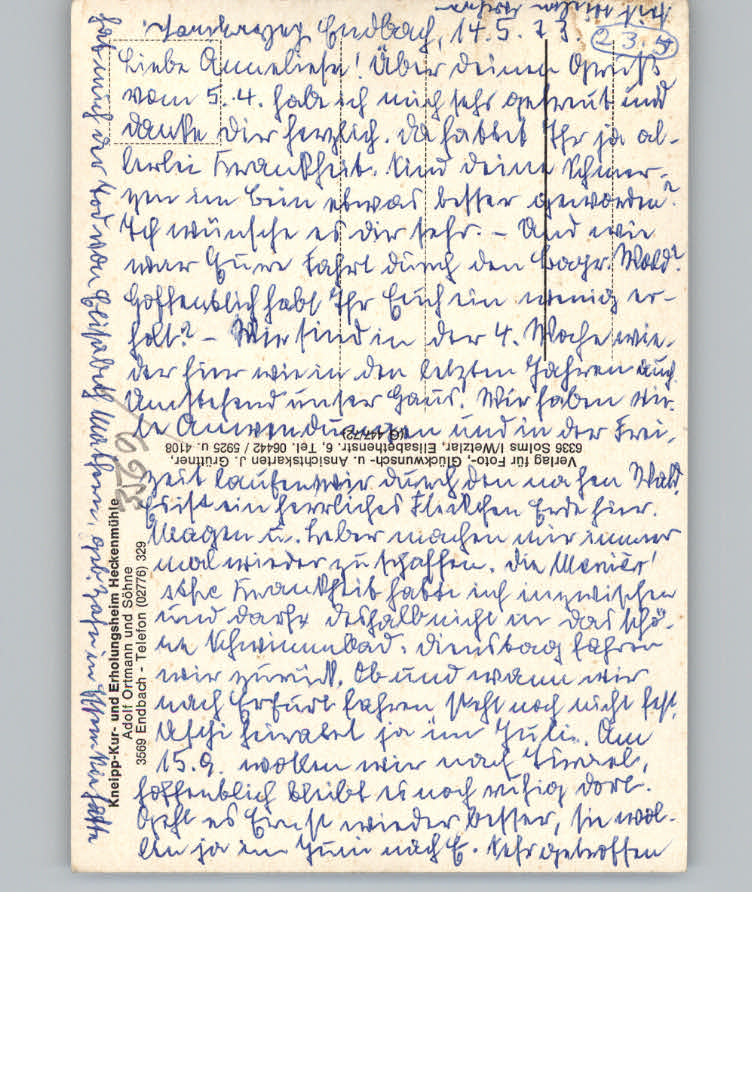 Endbach, 14.5.73.
23.5
Liebe Anneliese! Über deinen Gruß
vom 5.4. habe ich mich sehr gefreut und
danke Dir herzlich. Da hattet Ihr ja al-
lerlei Krankheit. Sind deine Schmer-
zen im Bein etwas besser geworden?
Ich wünsche es dir sehr. – Und wie
war Eure Fahrt durch den bayr. Wald?
Hoffentlich habt Ihr Euch ein wenig er-
holt? – Wir sind in der 4. Woche wie-
der hier wie in den letzten Jahren auch.
Umstehend unser Haus. Wir haben vie-
le Anwendungen und in der Frei-
zeit laufen wir durch den nahen Wald.
Es ist ein herrliches Fleckchen Erde hier.
Magen u. Leber machen mir immer
mal wieder zu schaffen. Die Menièr'
sche Krankheit hatte ich inzwischen
und darf deshalb nicht in das schö-
ne Schwimmbad. Dienstag fahren
wir zurück. Ob und wann wir
nach Erfurt fahren steht noch nicht fest.
Uschi heiratet ja im Juli. Am
15.9. wollen wir nach Israel,
hoffentlich bleibt es noch ruhig dort.
Geht es Ernst wieder besser, sie wol-
len ja im Juni nach E. Sehr getroffen
hat mich der Tod von Elisabeth
3569
Kneipp-Kur- und Erholungsheim Heckenmühle
Adolf Ortmann und Söhne
3569 Endbach - Telefon (02776) 329
Verlag für Foto-, Glückwunsch- u. Ansichtskarten J. Grüttner,
6336 Solms I/Wetzlar, Elisabethenstr. 6, Tel. 06442 / 5925 u. 4108